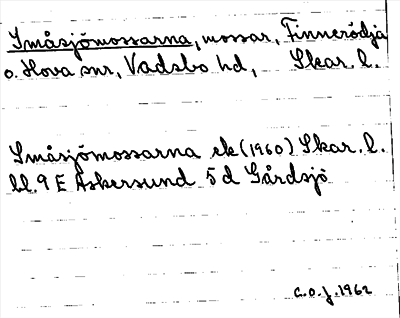 Småsjömossarna, mossar, Finnerödja
o. Hova snr, Vadsbo hd, Skar. l.
Småsjömossarna ek (1960) Skar. l.
bl. 9 E Askersund 5 d Gårdsjö
C.O.J. 1962